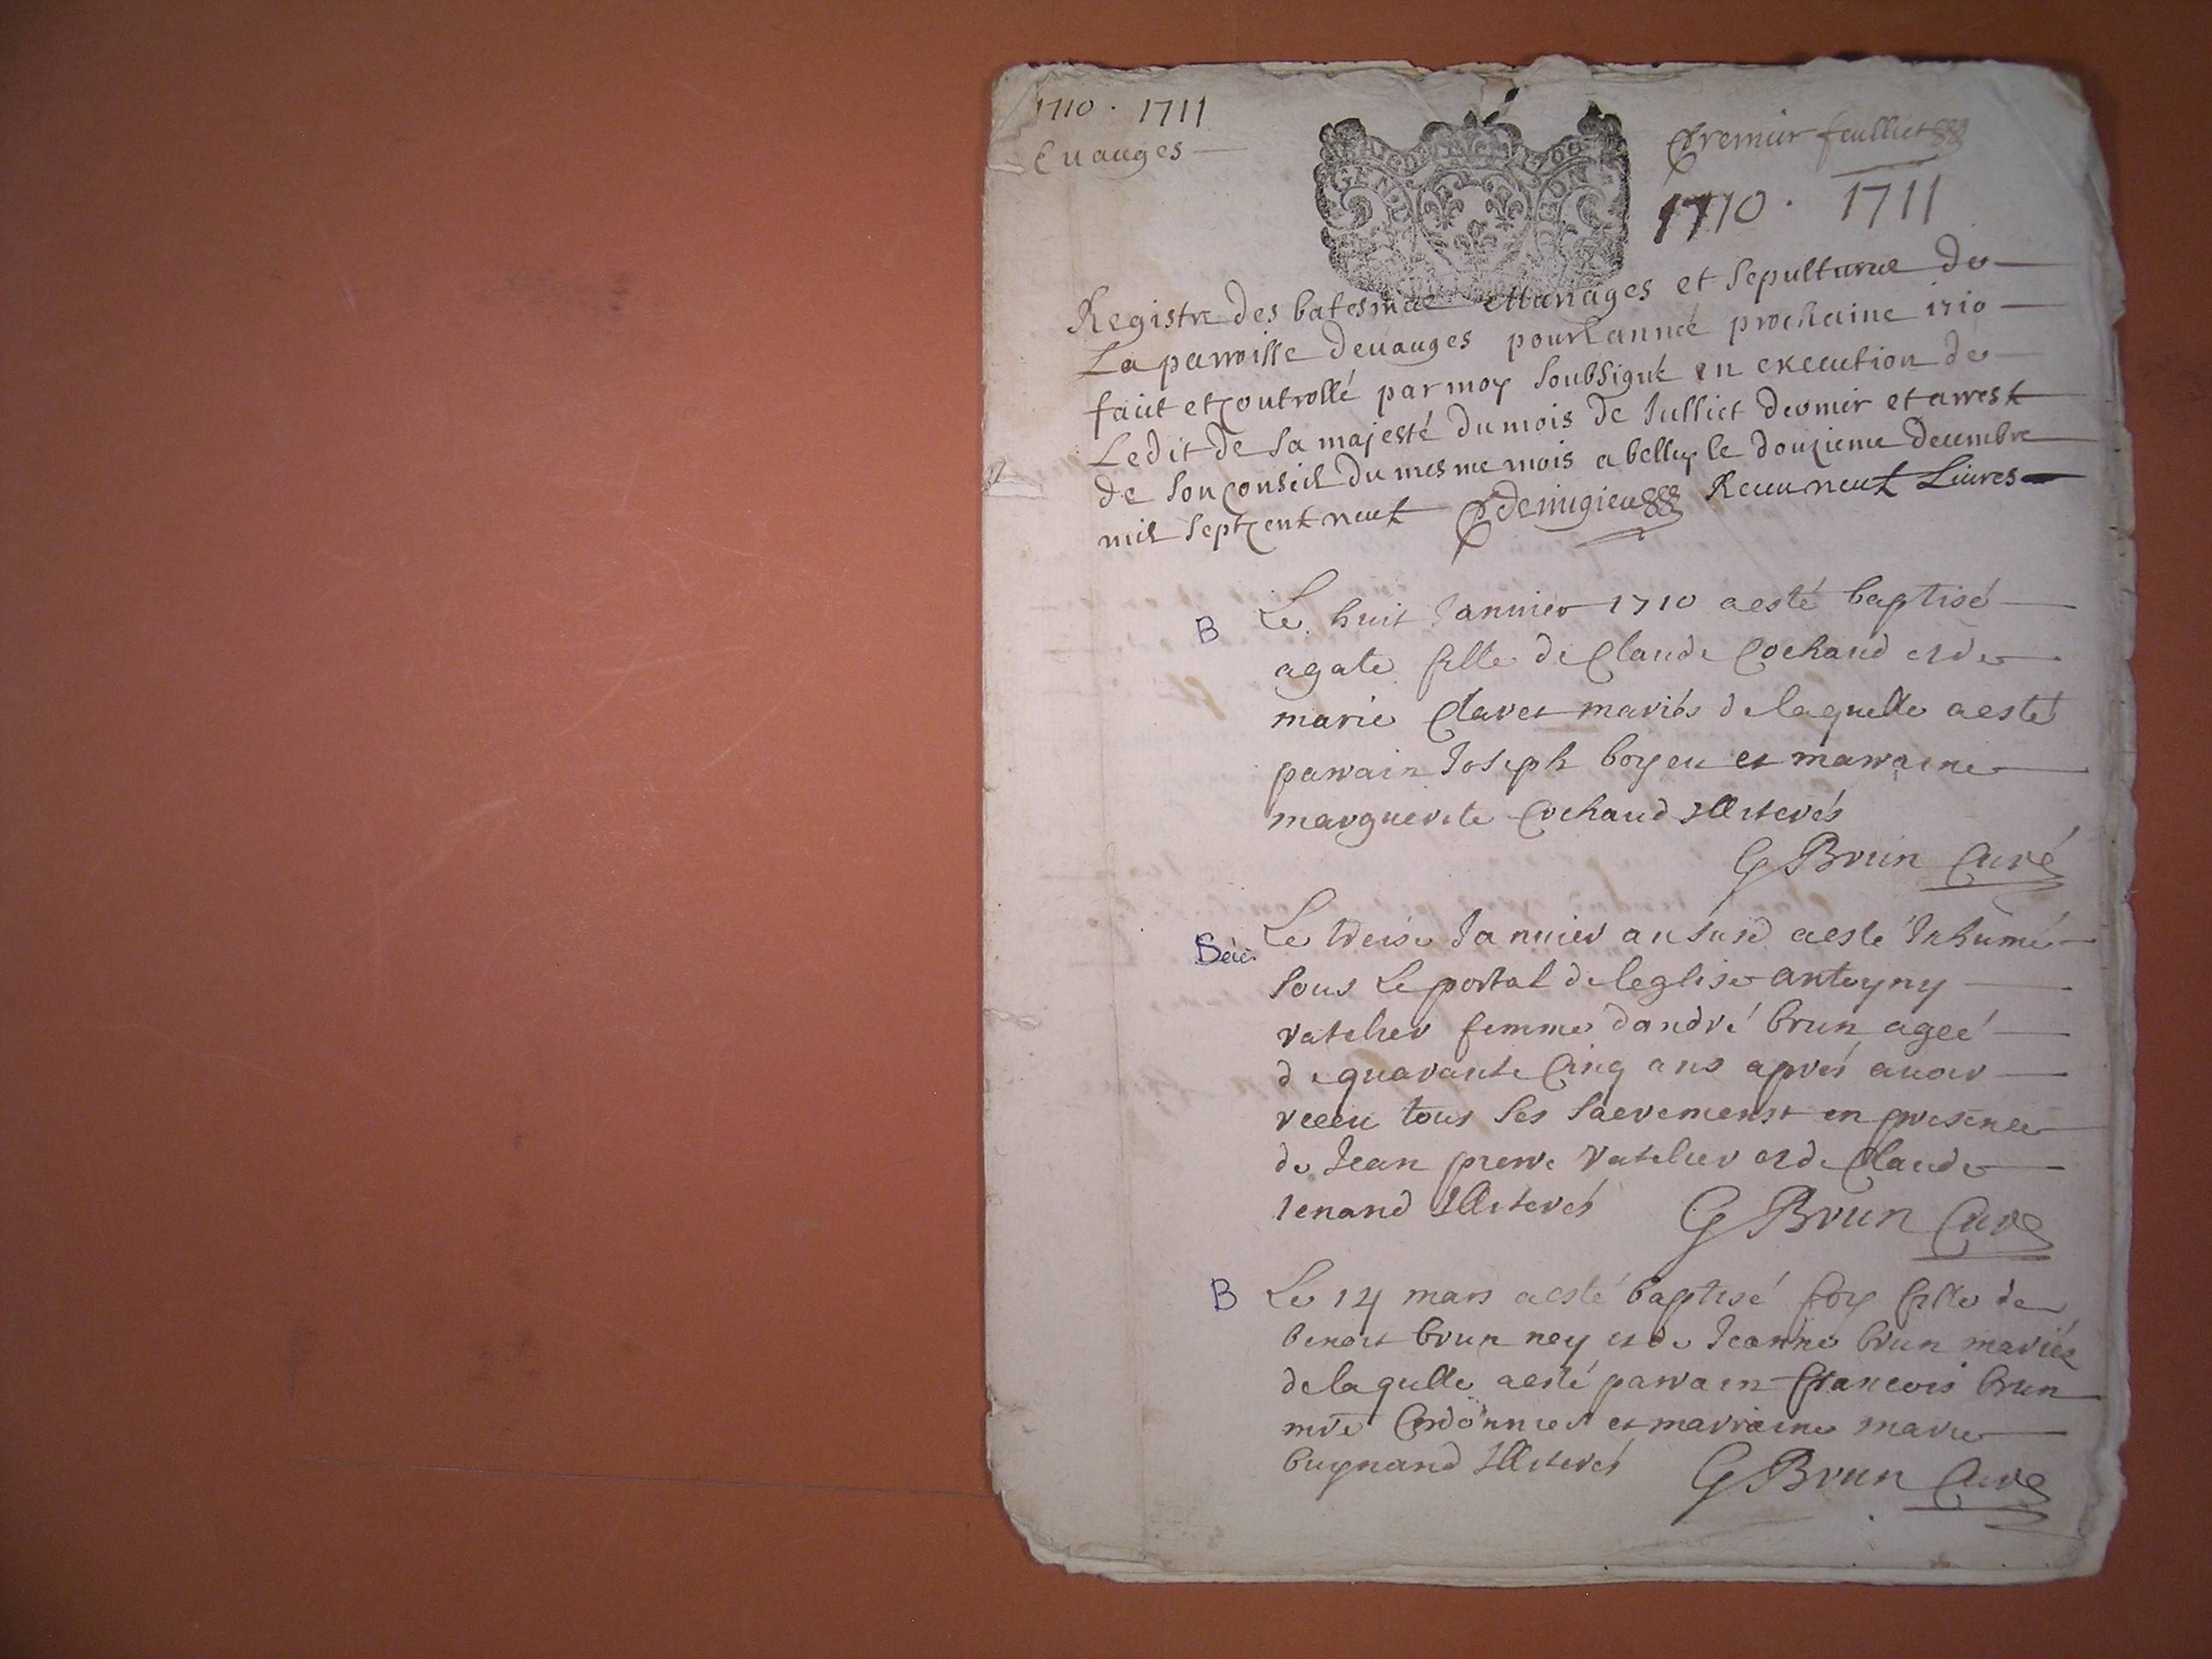 1710 . 1711
Euauges
premier feulliet
1710 . 1711
GEN ON
Registre des batesmae Mariages et sepulturae de
La parroisse deuauges pour Lanneé prochaine 1710
faict et controllé par moy soubsigné en execution de
Ledit de sa majesté du mois de Julliet dernier et arrest
de son conseil du mesme mois a belley le douzieme decembre
mil sept cent neuf Receu neuf Liures
B Le huit Januier 1710 a esté baptisé
agate fille de Claude Cochand et de
marie Claret mariés de laquelle a esté
parrain Joseph boyeu et marraine
marguerite Cochand Illiterés
G Brun Curé
Déc. Le treise Januier an susd a esté Inhumé
sous Le portal de leglise antoyny
vatelier femme dandré brun ageé
de quarante Cinq ans aprés auoir
receu tous ses sacrements en presence
de Jean pierre vatelier et de Claude
Illiterés G Brun Curé
B Le 14 mars a esté baptisé foy fille de
benoit brun ney et de Jeanne brun mariés
de laqulle a esté parrain francois brun
mre Cordonnier et marraine marie
buynand Illiterés G Brun Curé